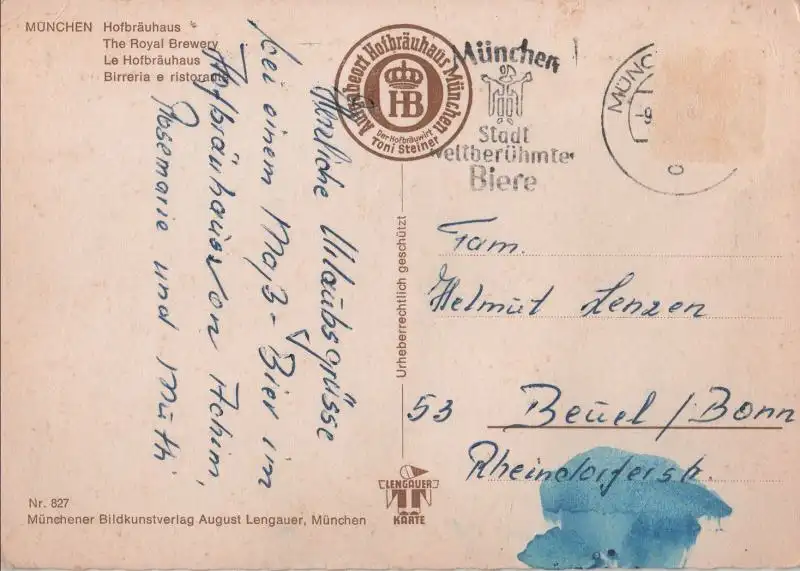 MÜNCHEN Hofbräuhaus
The Royal Brewery
Le Hofbräuhaus
Birreria e ristorante
Ausgabeort Hofbräuhaus München
HB
Der Hofbräuwirt
Toni Steiner
München
Stadt
weltberühmter
Biere
MÜNC
-9
Herzliche Urlaubsgrüsse
bei einem Maß-Bier im
Hofbräuhaus von Achim,
Rosemarie und Mutti
Urheberrechtlich geschützt
Fam.
Helmut Lenzen
53 Beuel/Bonn
Rheindorferstr.
Nr. 827
Münchener Bildkunstverlag August Lengauer, München
LENGAUER
KARTE